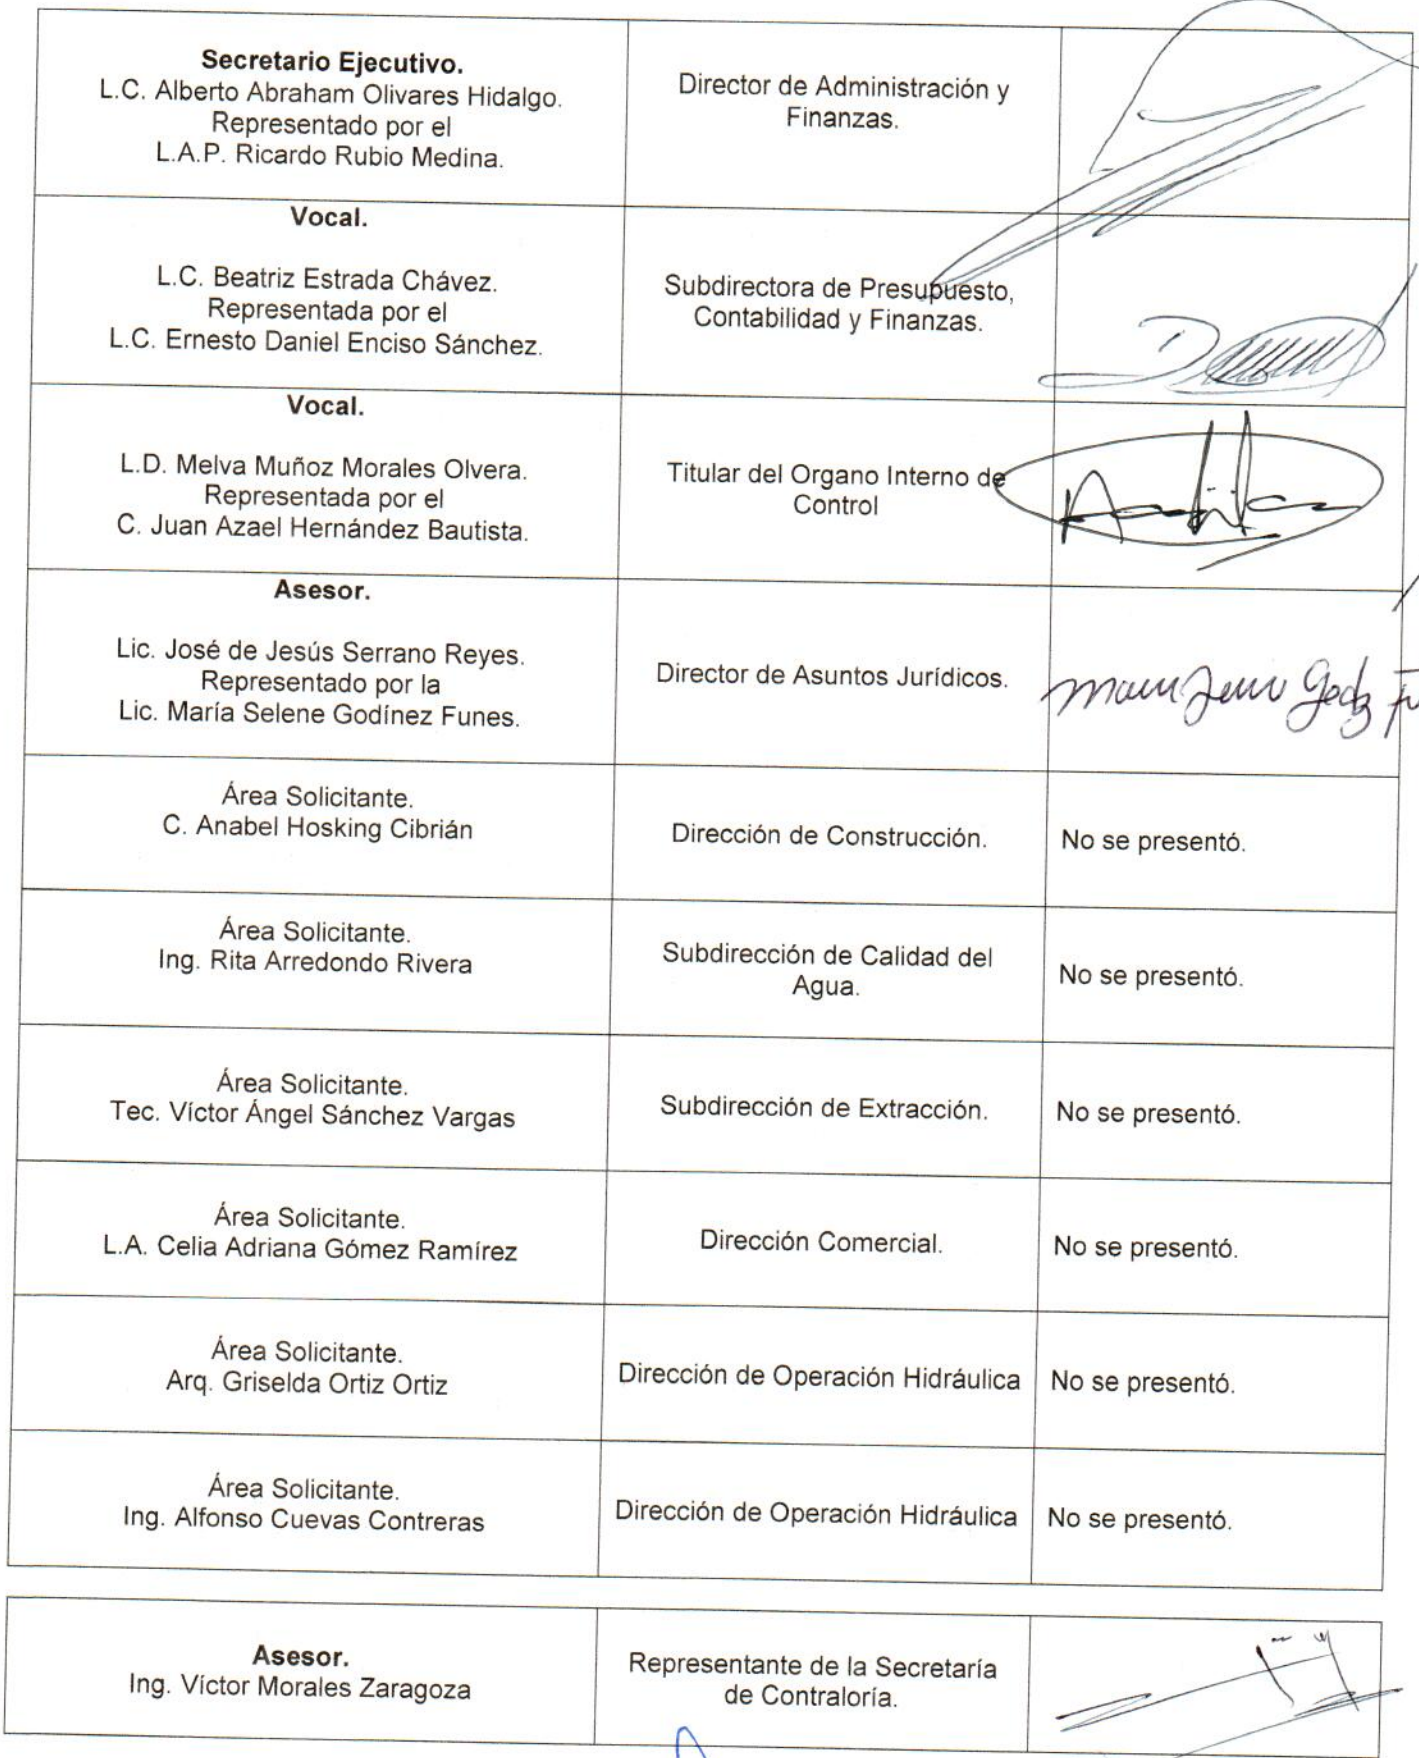 Secretario Ejecutivo.
L.C. Alberto Abraham Olivares Hidalgo.
Representado por el
L.A.P. Ricardo Rubio Medina.
Director de Administración y
Finanzas.
Vocal.
L.C. Beatriz Estrada Chávez.
Representada por el
L.C. Ernesto Daniel Enciso Sánchez.
Subdirectora de Presupuesto,
Contabilidad y Finanzas.
Vocal.
L.D. Melva Muñoz Morales Olvera.
Representada por el
C. Juan Azael Hernández Bautista.
Titular del Organo Interno de
Control
Asesor.
Lic. José de Jesús Serrano Reyes.
Representado por la
Lic. María Selene Godínez Funes.
Director de Asuntos Jurídicos.
Área Solicitante.
C. Anabel Hosking Cibrián
Dirección de Construcción.
No se presentó.
Área Solicitante.
Ing. Rita Arredondo Rivera
Subdirección de Calidad del
Agua.
No se presentó.
Área Solicitante.
Tec. Víctor Ángel Sánchez Vargas
Subdirección de Extracción.
No se presentó.
Área Solicitante.
L.A. Celia Adriana Gómez Ramírez
Dirección Comercial.
No se presentó.
Área Solicitante.
Arq. Griselda Ortiz Ortiz
Dirección de Operación Hidráulica
No se presentó.
Área Solicitante.
Ing. Alfonso Cuevas Contreras
Dirección de Operación Hidráulica
No se presentó.
Asesor.
Ing. Víctor Morales Zaragoza
Representante de la Secretaría
de Contraloría.